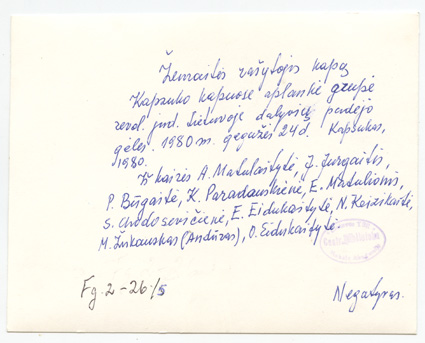 Žemaitės rašytojos kapą
Kapsuko kapuose aplankė grupė
revol. jud. Lietuvoje dalyvių padėjo
gėles. 1980 m. gegužės 24 d. Kapsukas,
1980.
Iš kairės A. Matulaitytė, J. Jurgaitis,
P. Būgaitė, K. Paradauskienė, E. Matulionis,
S. Chodosevičienė, E. Eidukaitytė, N. Kairskaitė,
M. Žukauskas (Andūras), O. Eidukaitytė.
Fg. 2-26/5
Negatyvas.